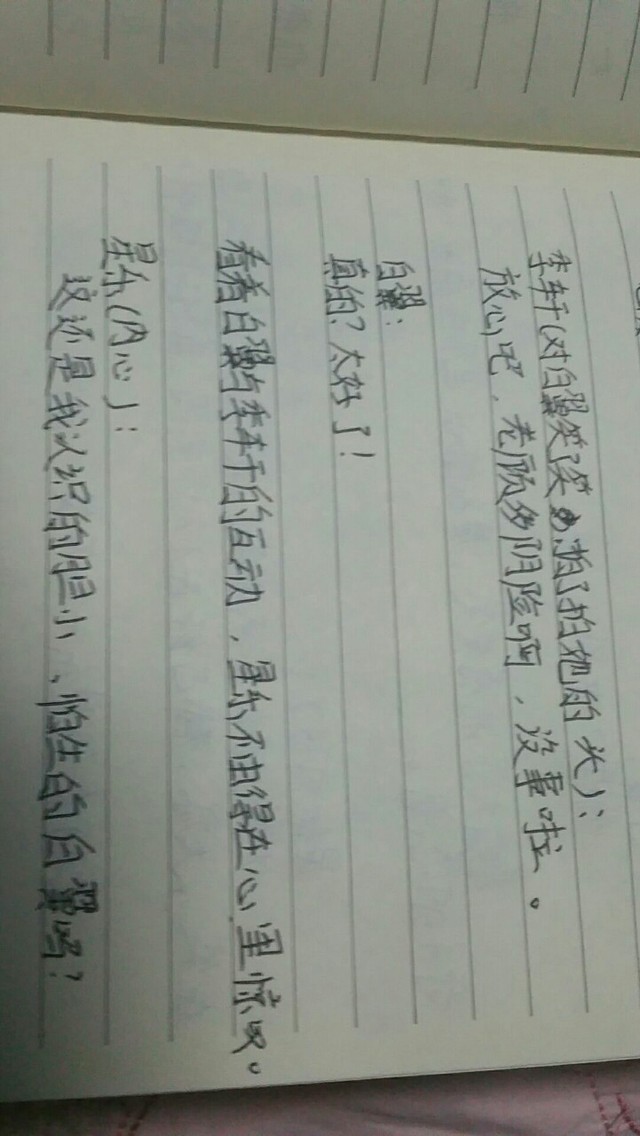 李轩(对白翼笑了笑,拍了拍她的头):
放心吧,老顾多阴险啊,没事啦。
白翼:
真的?太好了!
看着白翼与李轩的互动,星乐不由得在心里惊叹。
星乐(内心):
这还是我认识的胆小、怕生的白翼吗?